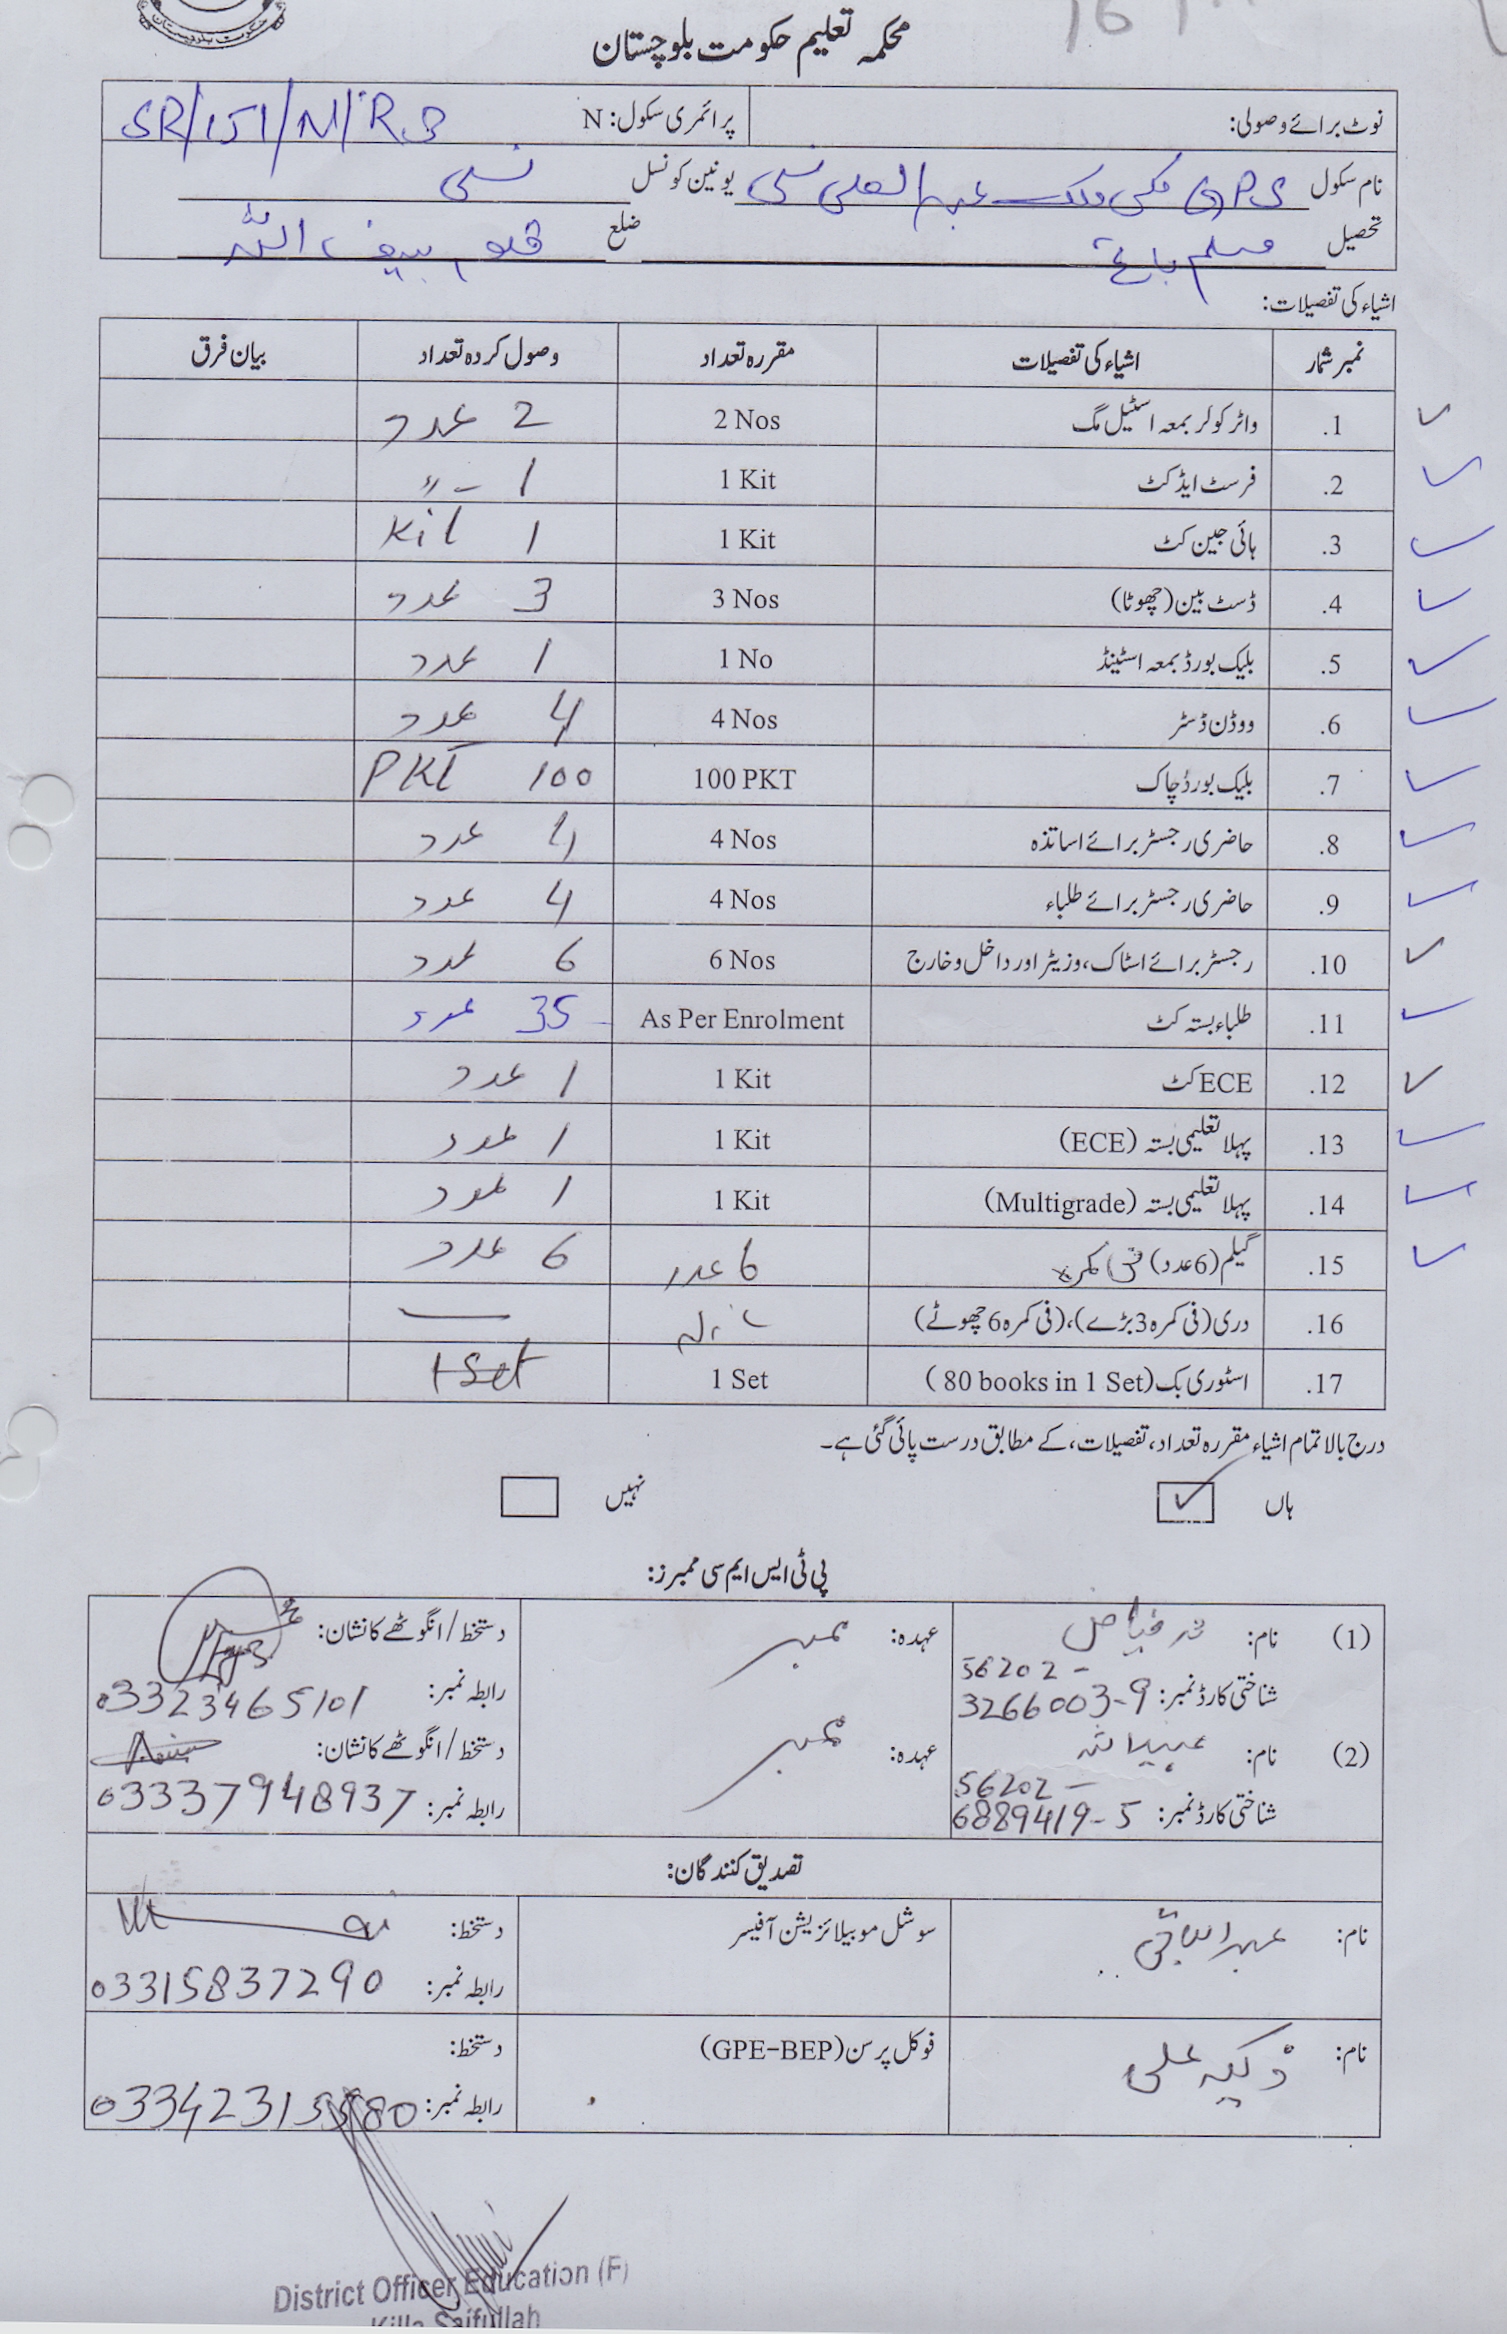 حکومت بلوچستان
محکمہ تعلیم حکومت بلوچستان
نوٹ برائے وصولی: پرائمری سکول: N SR/151/N/RB
نام سکول GPS کلی ملک عبدالعلی نسی یونین کونسل نسی
تحصیل مسلم باغ ضلع قلعہ سیف اللہ
اشیاء کی تفصیلات:
نمبر شمار اشیاء کی تفصیلات مقررہ تعداد وصول کردہ تعداد بیان فرق
1. واٹر کولر بمعہ اسٹیل مگ 2 Nos 2 عدد
2. فرسٹ ایڈ کٹ 1 Kit 1 - //
3. ہائی جین کٹ 1 Kit 1 Kit
4. ڈسٹ بین (چھوٹا) 3 Nos 3 عدد
5. بلیک بورڈ بمعہ اسٹینڈ 1 No 1 عدد
6. ووڈن ڈسٹر 4 Nos 4 عدد
7. بلیک بورڈ چاک 100 PKT 100 PKT
8. حاضری رجسٹر برائے اساتذہ 4 Nos 4 عدد
9. حاضری رجسٹر برائے طلباء 4 Nos 4 عدد
10. رجسٹر برائے اسٹاک، وزیٹر اور داخل و خارج 6 Nos 6 عدد
11. طلباء بستہ کٹ As Per Enrolment 35 عدد
12. ECE کٹ 1 Kit 1 عدد
13. پہلا تعلیمی بستہ (ECE) 1 Kit 1 عدد
14. پہلا تعلیمی بستہ (Multigrade) 1 Kit 1 عدد
15. گیلم (6 عدد) فی کمرہ 6 عدد 6 عدد
16. دری (فی کمرہ 3 بڑے)، (فی کمرہ 6 چھوٹے) —
17. اسٹوری بک (80 books in 1 Set) 1 Set 1 Set
درج بالا تمام اشیاء مقررہ تعداد، تفصیلات، کے مطابق درست پائی گئی ہے۔
ہاں ✓ نہیں
پی ٹی ایس ایم سی ممبرز:
(1) نام: فیاض عہدہ: ممبر دستخط/انگوٹھے کا نشان:
شناختی کارڈ نمبر: 56202-3266003-9 رابطہ نمبر: 03323465101
(2) نام: عبیداللہ عہدہ: ممبر دستخط/انگوٹھے کا نشان:
شناختی کارڈ نمبر: 56202-6889419-5 رابطہ نمبر: 03337948937
تصدیق کنندگان:
نام: عبدالباقی سوشل موبیلائزیشن آفیسر دستخط:
رابطہ نمبر: 03315837290
نام: علی فوکل پرسن (GPE-BEP) دستخط:
رابطہ نمبر:
District Officer Education (F)
Killa Saifullah